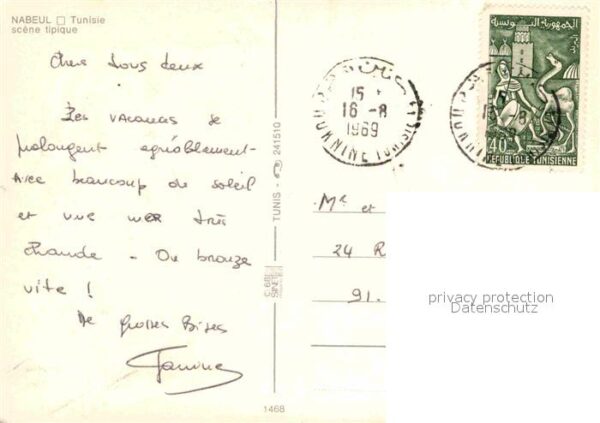 NABEUL □ Tunisie
scène tipique
Chers tous deux
Les vacances se
prolongent agréablement-
Avec beaucoup de soleil
et une mer très
chaude - On bronze
vite !
De grosses Bises
TUNIS - 241510
C. 681
1468
15
16-8
1969
الجمهورية التونسية
40
REPUBLIQUE TUNISIENNE
Mr et
24 R
91.
privacy protection
Datenschutz